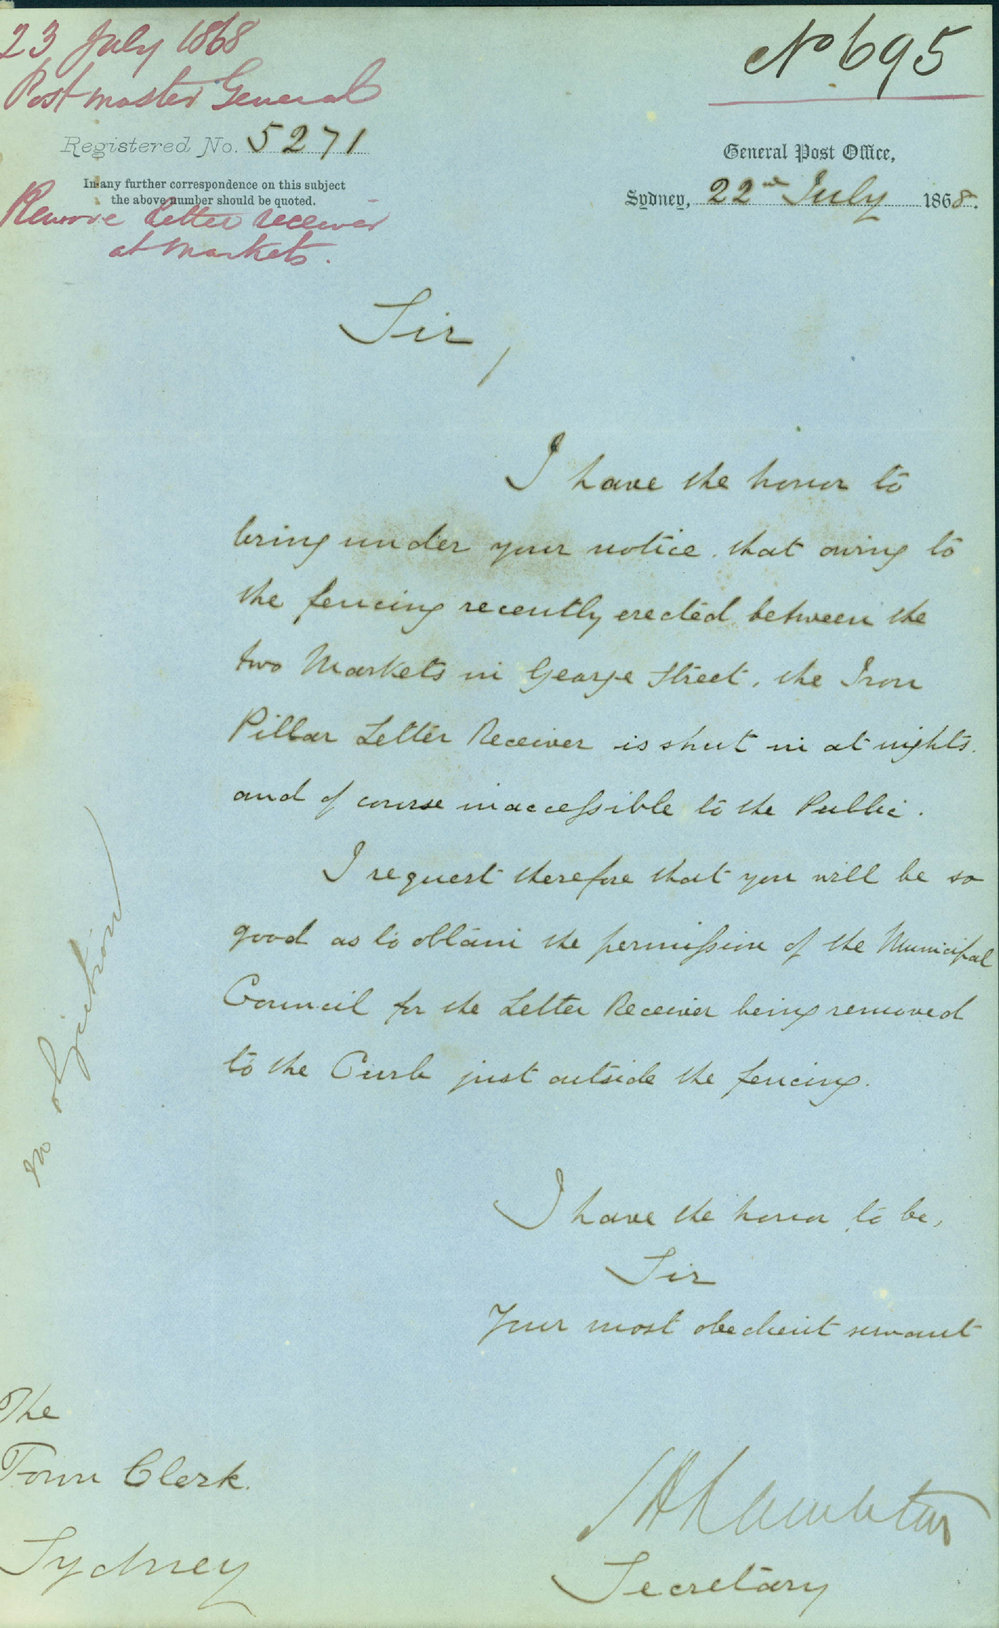 23 July 1868
Postmaster General
No 695
Registered No. 5271
In any further correspondence on this subject
the above number should be quoted.
Remove Letter receiver
at Markets.
General Post Office,
Sydney, 22nd July 1868.
Sir,
I have the honor to
bring under your notice that owing to
the fencing recently erected between the
two Markets in George Street, the Iron
Pillar Letter Receiver is shut in at nights.
and of course inaccessible to the Public.
I request therefore that you will be so
good as to obtain the permission of the Municipal
Council for the Letter Receiver being removed
to the Curb just outside the fencing.
no objection
I have the honor to be,
Sir
Your most obedient servant
The
Town Clerk.
Sydney
Secretary